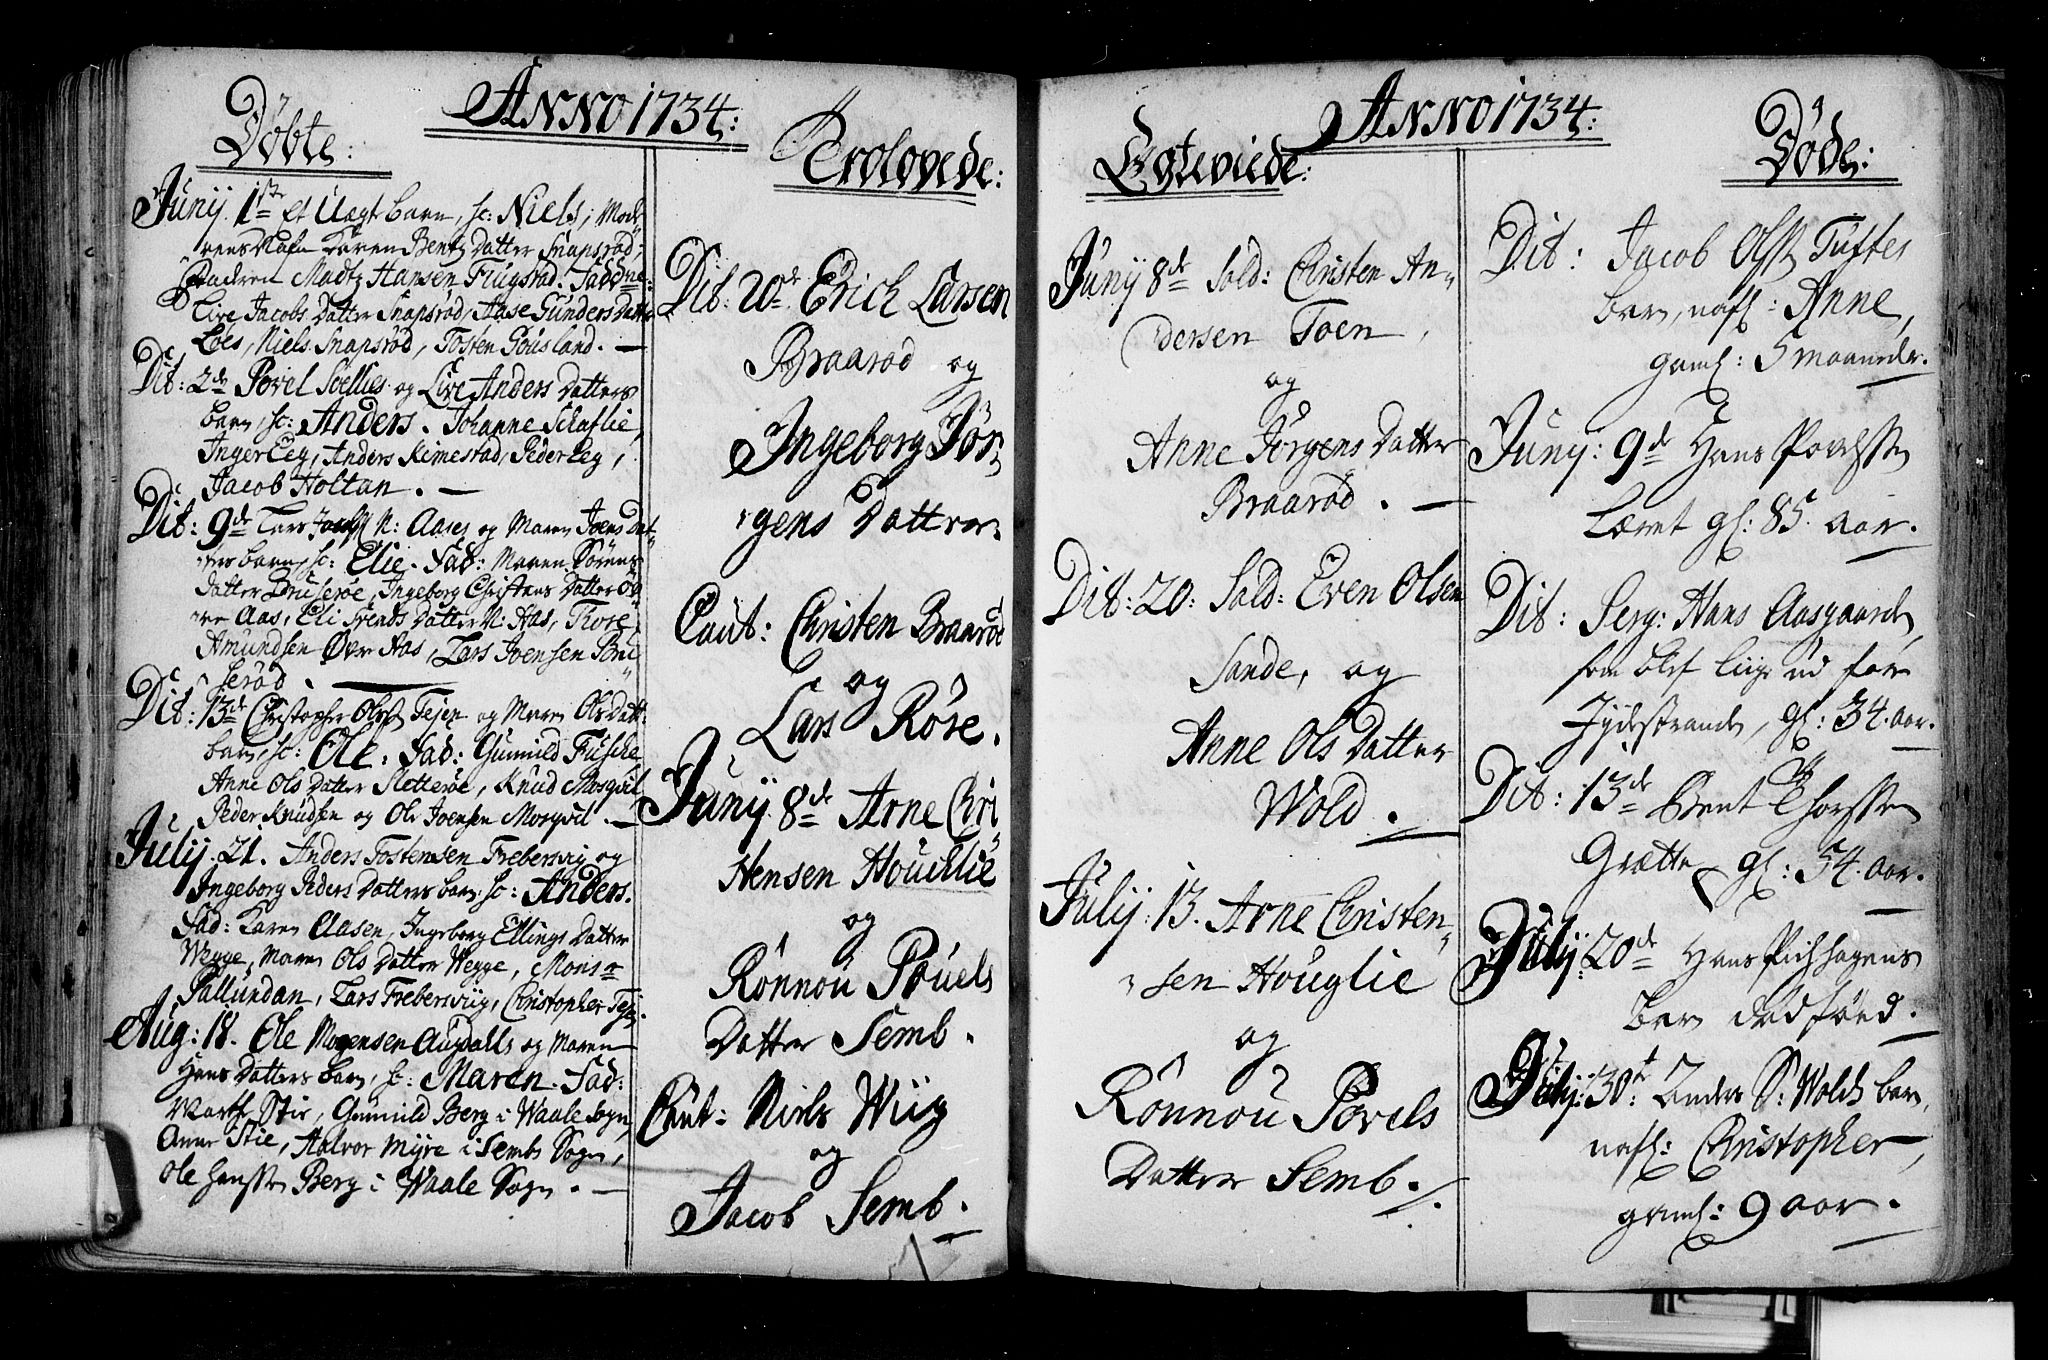 ANNO 1734:
Döbte:
Junij. 1ste et Uægt barn, sc: Niels, Mod¬
rens Nafn Karen Bents Datter Snapsröd,
Faadren Madtz Hansen Flugsrød. Faddne:
Live Jacobs Datter Snapsröd, Aase Gunders Datter
Loes, Niels Snapsröd, Tosten Gousland. —
Dit: 2de Povel Soellies og Live Anders Datters
barn, sc: Anders. Johanne Schaflie,
Inger Eeg, Anders Kimestad, Peder Eeg,
Jacob Holtan. —
Dit: 9de Lars N: Aases og Maren Joens Dat¬
ters barn, sc: Elie. Fad: Maren Sörens
Datter Bruseröe, Ingeborg Christens Datter Ö¬
re Aas, Eli Svends Datter N: Aas, Tore
Amundsen Over Aas, Lars Joensen Bru¬
seröd.
Dit: 13de Christopher Olss Tejen og Maren Ols Datt:
barn, sc: Ole. Fad: Gunnild Fusche
Anne Ols Datter Sletteröe, Knud Mosqvil,
Peder Knudsen og Ole Joensen Mosqvil. —
Julij. 21. Anders Tostensen Frebersvig og
Ingeborg Peders Datters barn sc: Anders.
Fad: Karen Aasen, Ingeborg Ellings Datter
Wegge, Maren Ols Datter Wegge, Monsr
Pallundan, Lars Frebersviig, Christopher Teje.
Aug: 18. Ole Mogensen Augdalls og Maren
Hans Datters barn, sc: Maren. Fad:
Marthe Stie, Gunnild Berg i Waale Sogn,
Anne Stie, Halvor Myre i Sembs Sogn,
Ole Hanssen Berg i Waale Sogn. —
Trolovede:
Dit: 20de Erich Larsen
Braaröd og
Ingeborg Jör¬
gens Datter.
Caut: Christen Braaröd
og
Lars Röre.
Junij 8de Arne Chri¬
stensen Houchlie
og
Rönnou Pouels
Datter Semb.
Caut: Niels Wiig
og
Jacob Semb.
ANNO 1734:
Egteviede:
Junij 8de Sold: Christen An¬
dersen Toen,
og
Anne Jörgens Datter
Braaröd. —
Dit: 20: Sold: Even Olsen
Sande, og
Anne Ols Datter
Wold.
Julij: 13. Arne Christen¬
sen Houglie
og
Rönnou Povels
Datter Semb.
Döde:
Dit: Jacob Olss Tuftes
barn, nafl: Anne,
gaml: 5 maaneder.
Junij: 9de Hans Povelssen
Læret gl: 85. aar.
Dit: Serg: Hans Aasgaarden,
som blef liige ud fore
Jydestranden, gl: 34. aar.
Dit: 13de Bent Thorssen
Grætte gl: 54. aar.
Julij: 20de Hans Pichhagens
barn dødføed.
Julij: 30te: Anders S: Wolds barn,
nafl: Christopher,
gaml: 9 aar.